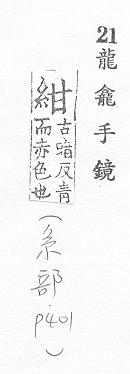 21龍龕手鏡
紺古暗反青而赤色也
(糸部.p401)